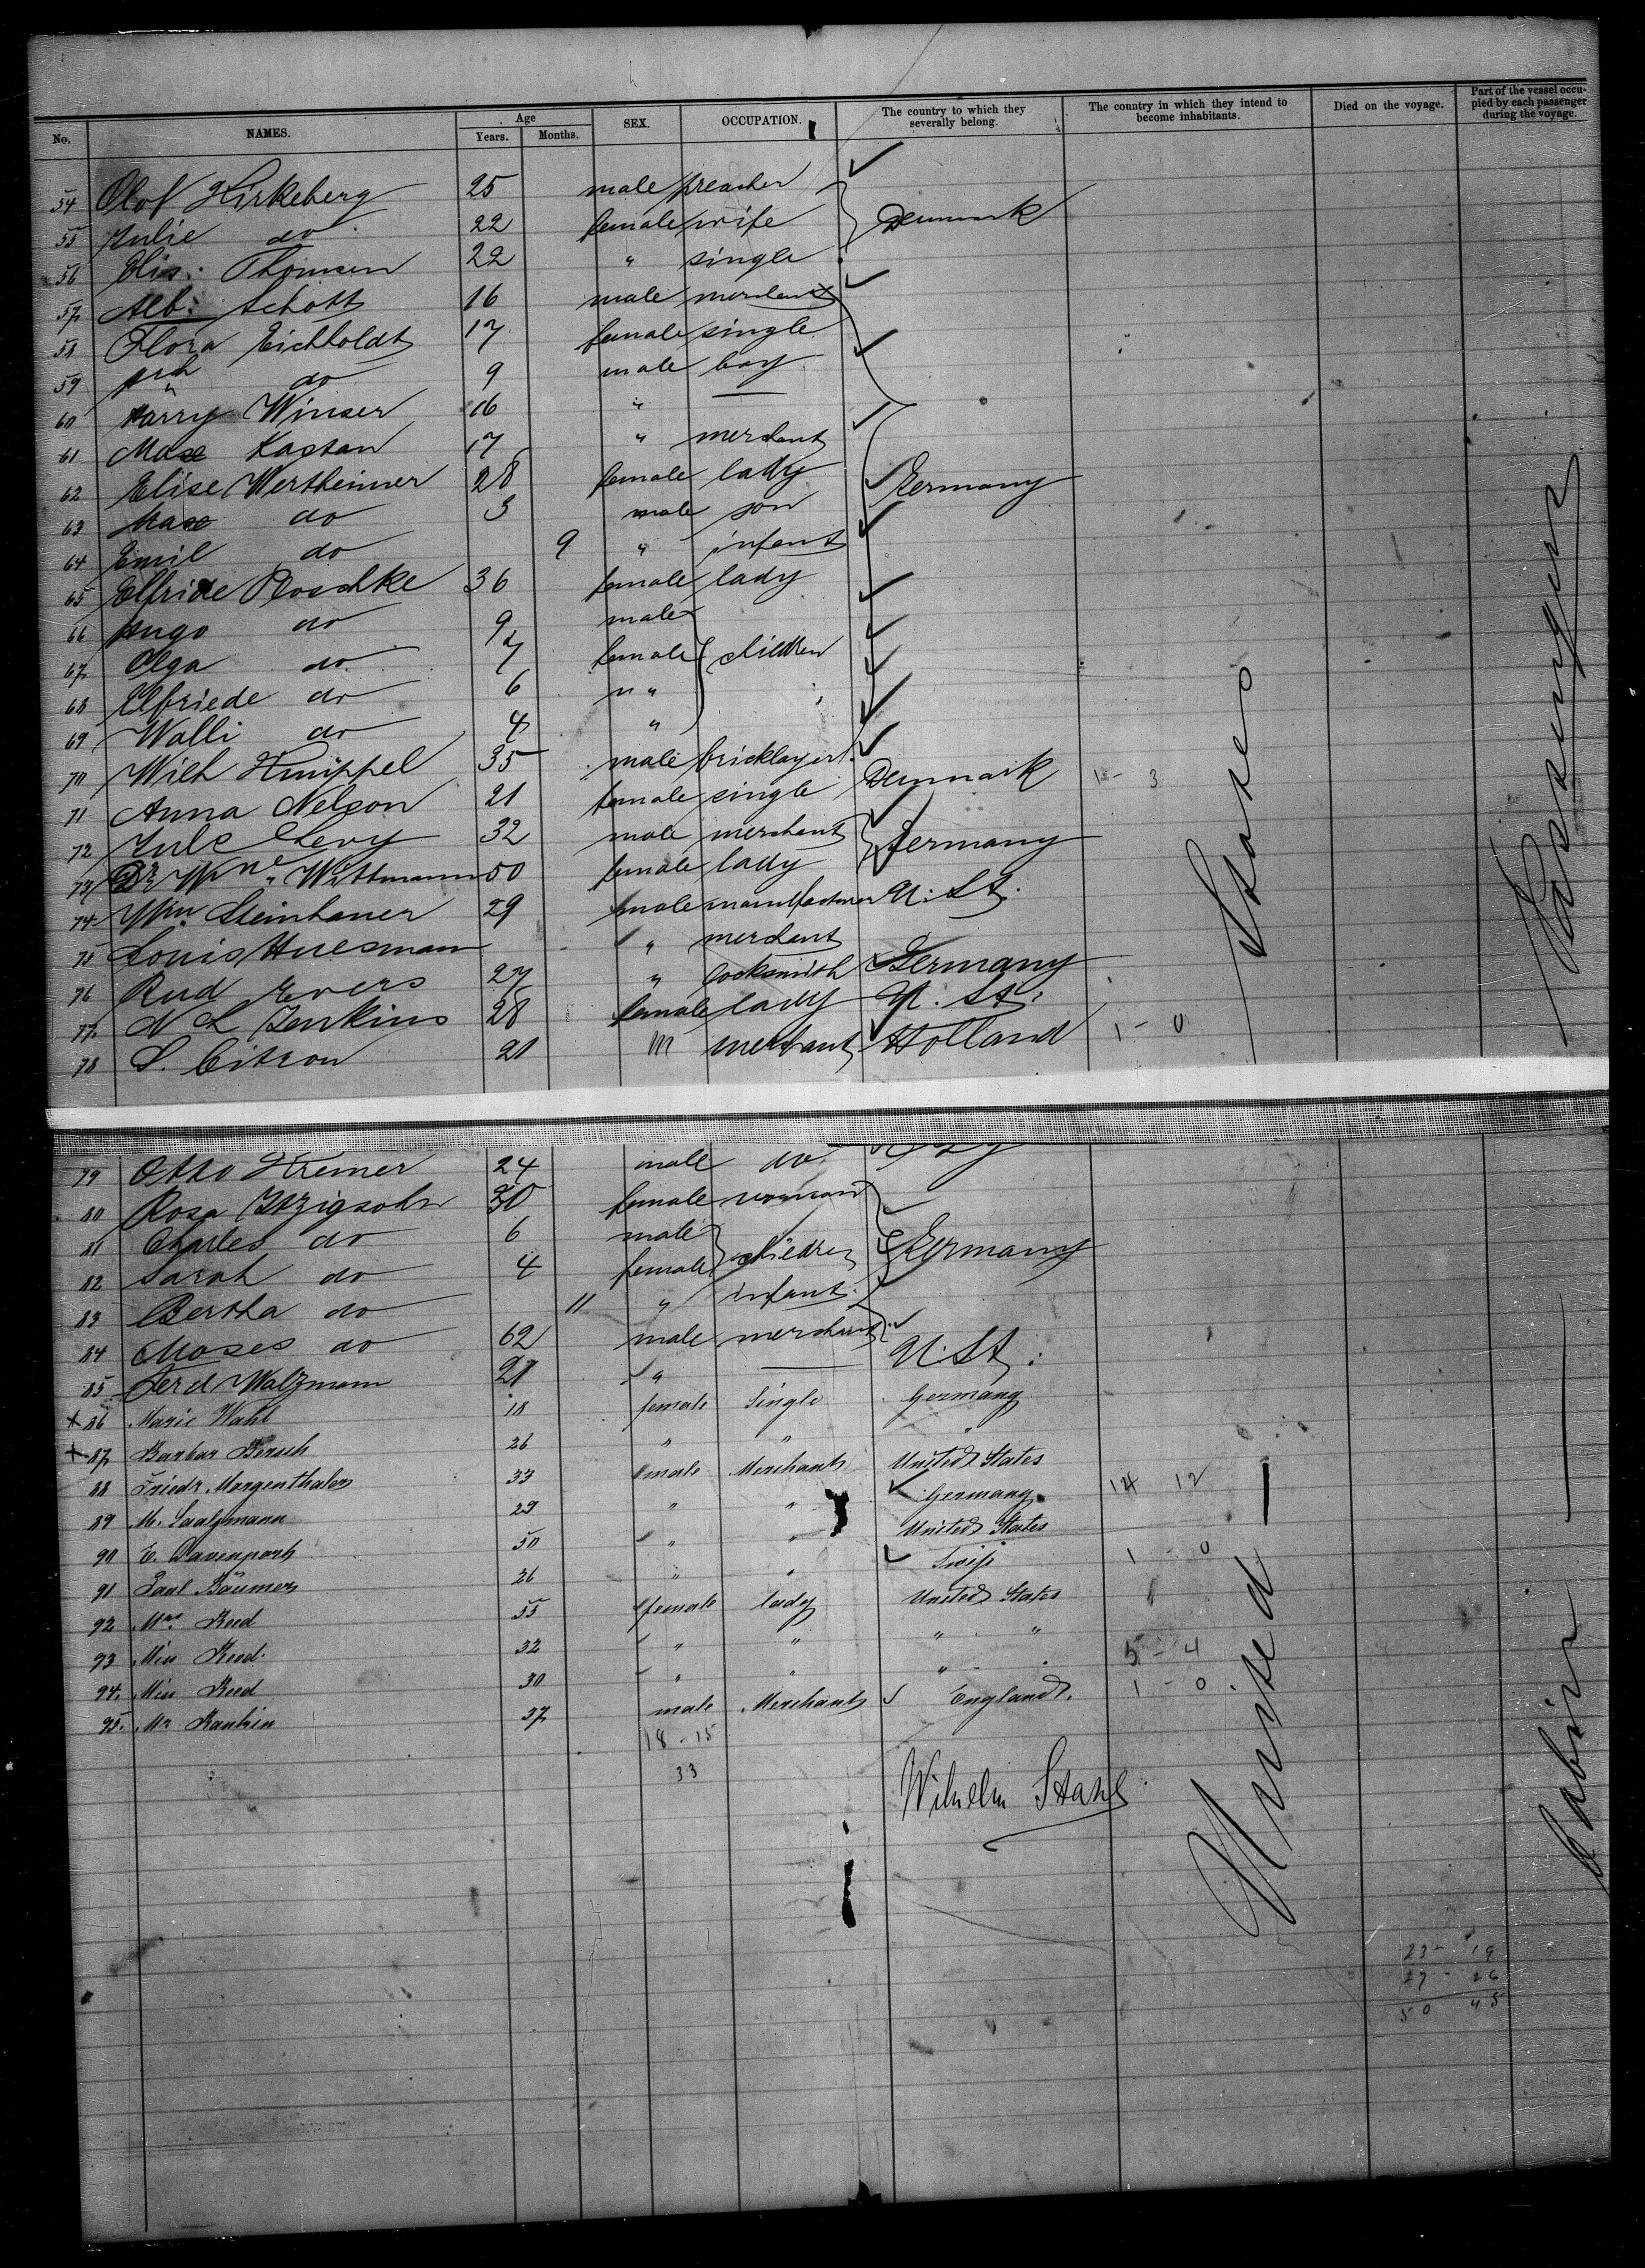 No. NAMES. Age Years. Months. SEX. OCCUPATION. The country to which they severally belong. The country in which they intend to become inhabitants. Died on the voyage. Part of the vessel occupied by each passenger during the voyage.
54 Olof Kirkeberg 25 male preacher
55 Julie do 22 female wife Denmark
56 Elis: Thomsen 22 " single
57 Alb: Schott 16 male merchant
58 Flora Eichholdt 17 female single
59 do 9 male boy
60 Harry Winser 16 " —
61 Max Kastan 17 " merchant
62 Elise Wertheimer 28 female lady Germany
63 Max do 3 male son
64 Emil do 9 " infant
65 Elfride Ploschke 36 female lady
66 Hugo do 9 male
67 Olga do 7 female children
68 Elfriede do 6 "
69 Walli do 4 "
70 Wilh Knippel 35 male bricklayer
71 Anna Nelson 21 female single Denmark 1 - 3
72 Jule Levy 32 male merchant Germany
73 Wittmann 50 female lady
74 Wm Steinhauer 29 male manufacturer U. St.
75 Louis Huesmann " merchant
76 Rud Evers 27 " locksmith Germany
77 N L Jenkins 28 female lady U. St.
78 S. Citron 21 m merchant Holland 1 - 0
79 Otto Kremer 24 male do
80 Rosa Itzigsohn 30 female woman
81 Charles do 6 male children Germany
82 Sarah do 4 female
83 Bertha do 11 " infant
84 Moses do 62 male merchant
85 Ferd Walzmann 21 " — U. St:
86 Marie Wahl 18 female Single Germany
87 Barbar Bersch 26 " " "
88 Friedr. Morgenthaler 33 male Merchant United States
89 M. Saalzmann 29 " " Germany 14 12
90 E. Davenport 50 " " United States
91 Paul Bäumer 26 " " Swiss 1 - 0
92 Mrs. Reed 55 female lady United States
93 Miss Reed. 32 " " " "
94. Miss Reed 30 " " " " 5 - 4
95. Mr Rankin 37 male Merchant England. 1 - 0
18 - 15
33
Wilhelm Stahl
United States
Cabin Passengers
23 - 19
27 - 26
50 45